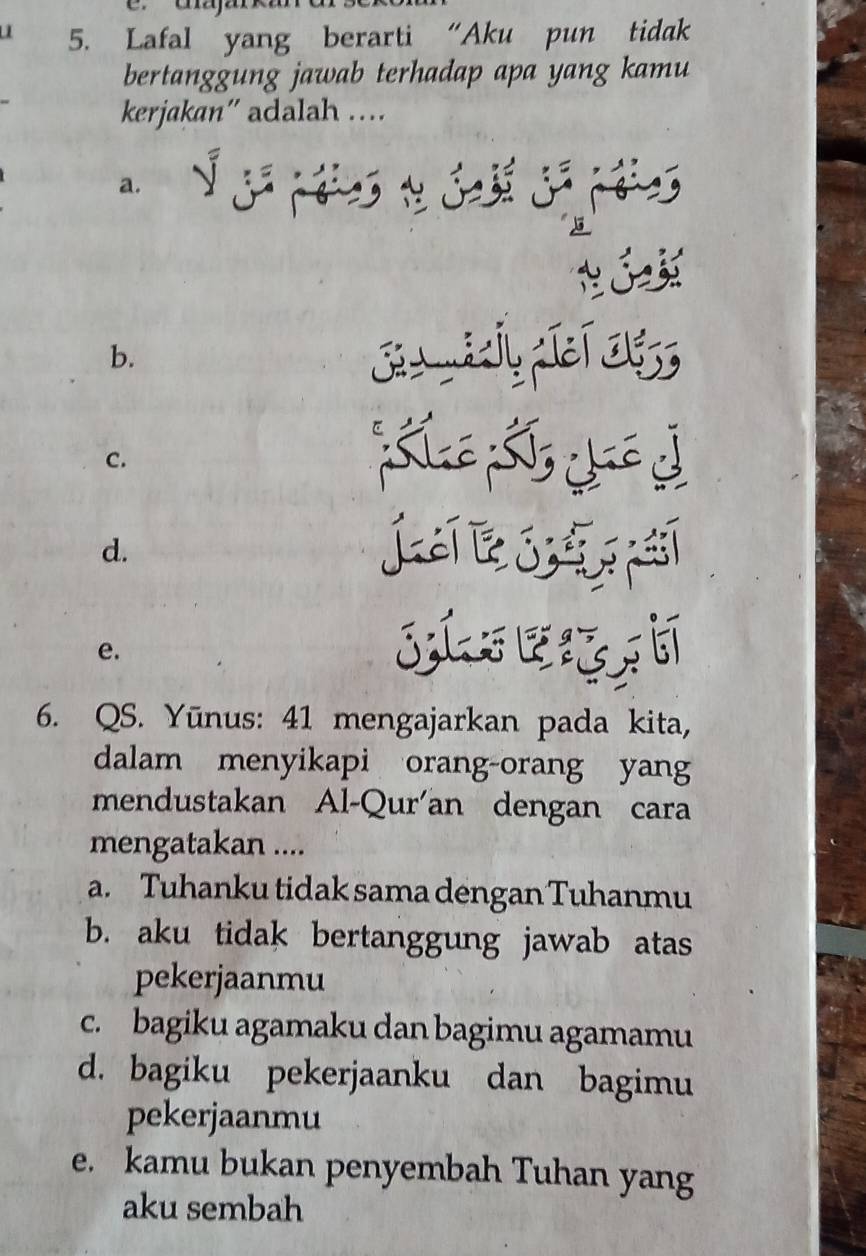 5. Lafal yang berarti "Aku pun tidak
bertanggung jawab terhadap apa yang kamu
kerjakan" adalah ....
a. وَمِنْهُمْ مَّنْ يُّؤْمِنُ بِهٖ وَمِنْهُمْ مَّنْ لَّا
يُؤْمِنُ بِهٖۗ
b. وَرَبُّكَ اَعْلَمُ بِالْمُفْسِدِيْنَ
c. لِّيْ عَمَلِيْ وَلَكُمْ عَمَلُكُمْۚ
d. اَنْتُمْ بَرِيْۤـُٔوْنَ مِمَّآ اَعْمَلُ
e. اَنَا۠ بَرِيْۤءٌ مِّمَّا تَعْمَلُوْنَ
6. QS. Yūnus: 41 mengajarkan pada kita,
dalam menyikapi orang-orang yang
mendustakan Al-Qur'an dengan cara
mengatakan ....
a. Tuhanku tidak sama dengan Tuhanmu
b. aku tidak bertanggung jawab atas
pekerjaanmu
c. bagiku agamaku dan bagimu agamamu
d. bagiku pekerjaanku dan bagimu
pekerjaanmu
e. kamu bukan penyembah Tuhan yang
aku sembah